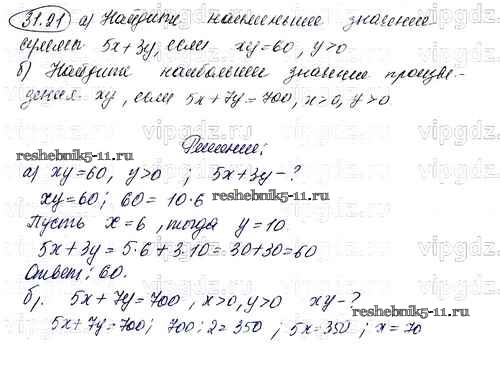 31.21 а) Найдите наименьшее значение
суммы 5x+3y, если xy=60, y>0
б) Найдите наибольшее значение произве-
дения xy, если 5x+7y=700, x>0, y>0
Решение:
reshebnik5-11.ru
а) xy=60, y>0 ; 5x+3y-?
xy=60; 60=10·6 reshebnik5-11.ru
Пусть x=6, тогда y=10
5x+3y=5·6+3·10=30+30=60
Ответ: 60.
б). 5x+7y=700, x>0, y>0 xy-?
5x+7y=700; 700:2=350 ; 5x=350 ; x=70
reshebnik5-11.ru
vipgdz.ru